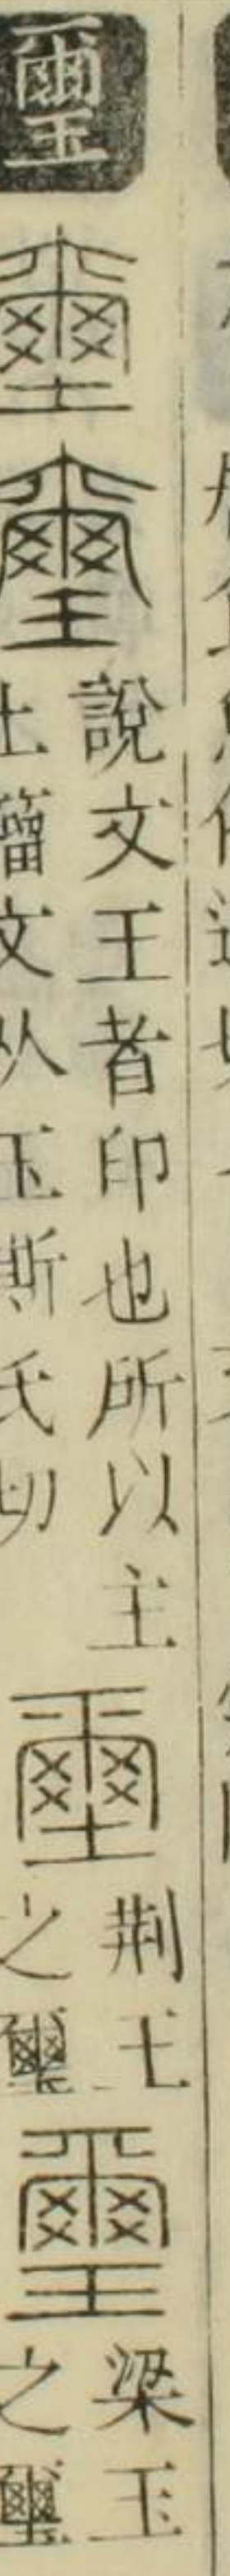 璽
璽
璽
說文王者印也所以主
土籀文从玉斯氏切
璽
荆王
之璽
璽
梁王
之璽